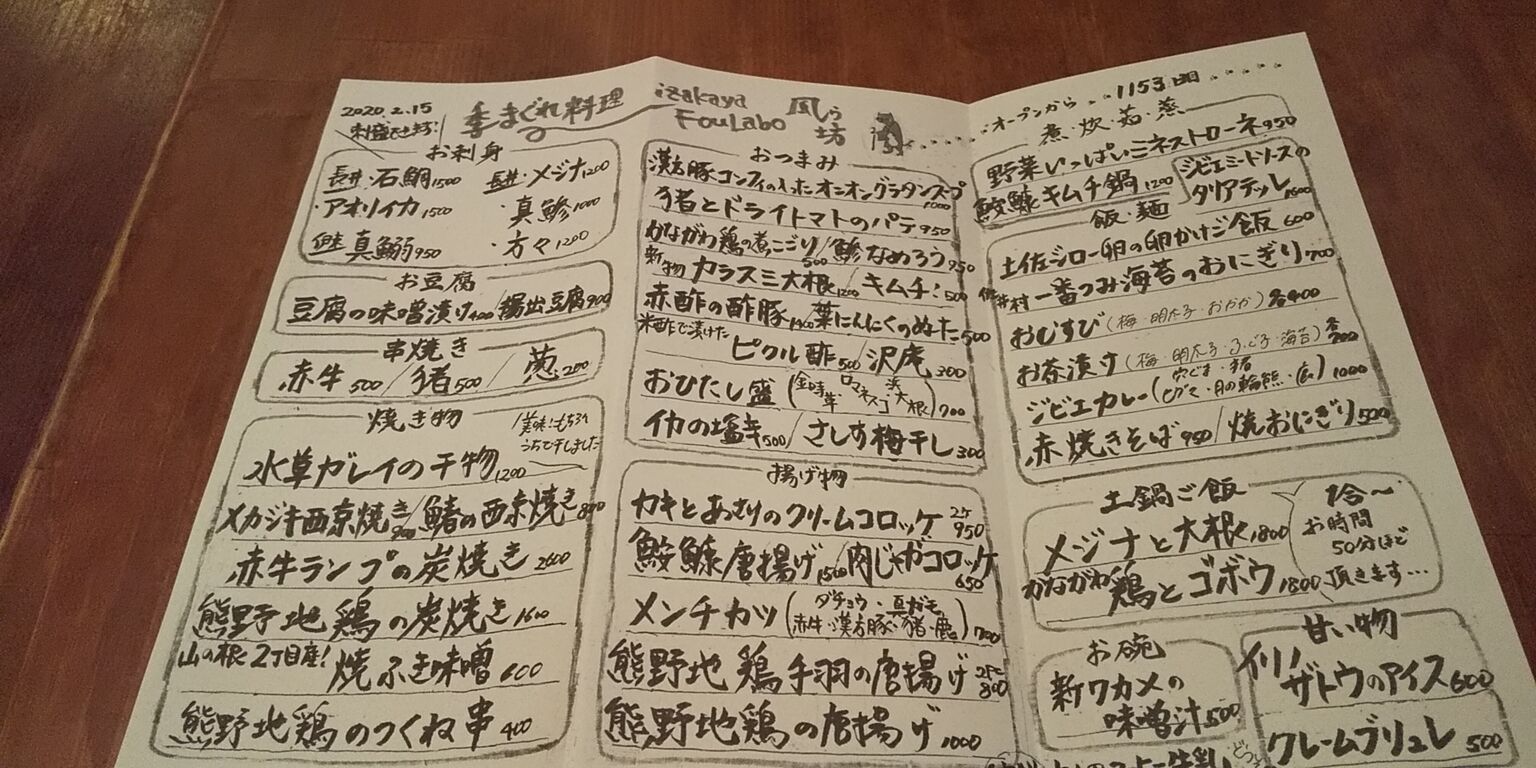 2020.2.15
季まぐれ料理
izakaya
FouLabo
風ら坊
オープンから 1153日目
お刺身
長井・石鯛1500 長井・メジナ1200
・アオリイカ1500 ・真鯵1000
佐島 真鰯950 ・方々1200
お豆腐
豆腐の味噌漬け400/揚出豆腐900
串焼き
赤牛500/猪500/葱200
焼き物
美味!もちろん
うちで干しました
水草ガレイの干物1200
メカジキ西京焼き900/鰆の西京焼き800
赤牛ランプの炭焼き2600
熊野地鶏の炭焼き1600
山の根2丁目産!焼ふき味噌600
熊野地鶏のつくね串400
おつまみ
漢方豚コンフィの入ったオニオングラタンスープ1000
猪とドライトマトのパテ950
かながわ鶏の煮こごり500/鯵なめろう950
新物カラスミ大根1200/キムチ!500
赤酢の酢豚1400/葉にんにくのぬた500
米酢で漬けたピクル酢500/沢庵300
おひたし盛(金時草・ロマネスコ・浜大根)700
イカの塩辛500/さしす梅干し300
揚げ物
カキとあさりのクリームコロッケ2ケ950
鮟鱇唐揚げ1500/肉じゃがコロッケ650
メンチカツ(ダチョウ・真ガモ・赤牛・漢方豚・猪・鹿)700
熊野地鶏手羽の唐揚げ2ケ800
熊野地鶏の唐揚げ1000
煮・炊・茹・蒸
野菜いっぱいミネストローネ950
鮟鱇キムチ鍋1200
ジビエミートソースの
タリアテッレ1600
飯・麺
土佐ジロー卵の卵かけご飯600
一番つみ海苔のおにぎり700
おむすび(梅・明太子・おかか)各400
お茶漬け(梅・明太子・ふじ子・海苔)各700
ジビエカレー(穴ぐま・猪・ヒグマ・月の輪熊・鹿)1000
赤焼きそば950/焼おにぎり500
土鍋ご飯
メジナと大根1800
かながわ鶏とゴボウ1800
1合〜
お時間
50分ほど
頂きます…
お碗
新ワカメの
味噌汁500
甘い物
イリノ
ザトウのアイス600
クレームブリュレ500